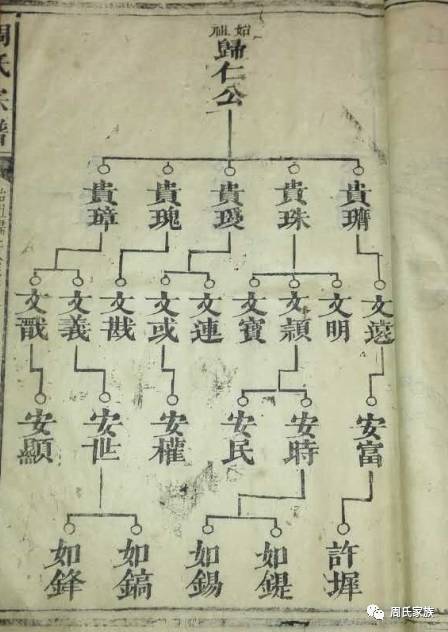 周氏宗譜
始祖
歸仁公
貴璋
貴瑰
貴瑷
貴珠
貴璾
文戬
文義
文戡
文或
文連
文寶
文穎
文明
文遠
安顯
安世
安權
安民
安時
安富
如鋒
如鎬
如錫
如鍉
許墀
周氏家族